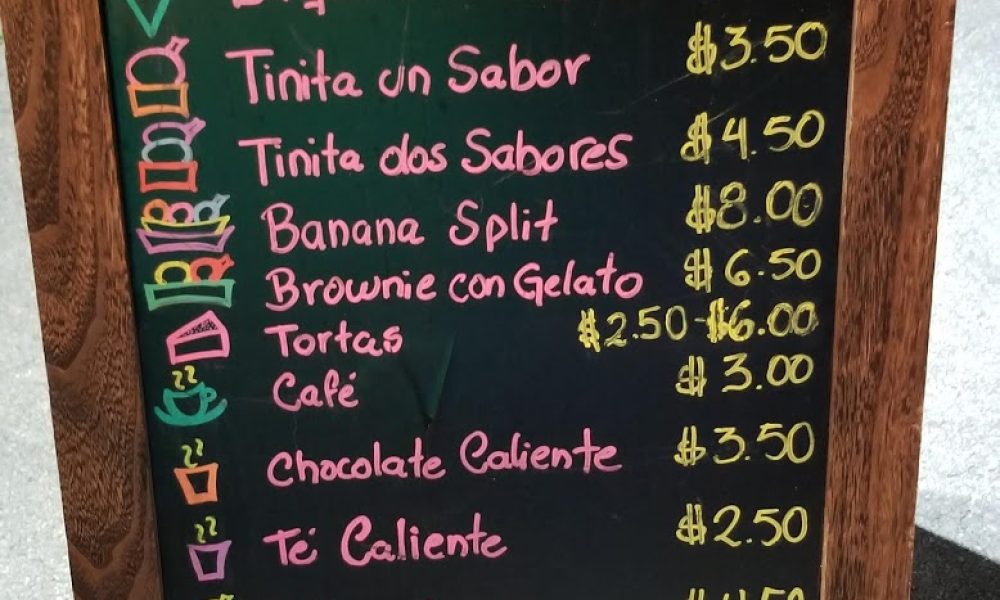 Tinita un Sabor $3.50
Tinita dos Sabores $4.50
Banana Split $8.00
Brownie con Gelato $6.50
Tortas $2.50-$6.00
Café $3.00
Chocolate Caliente $3.50
Té Caliente $2.50
$4.50